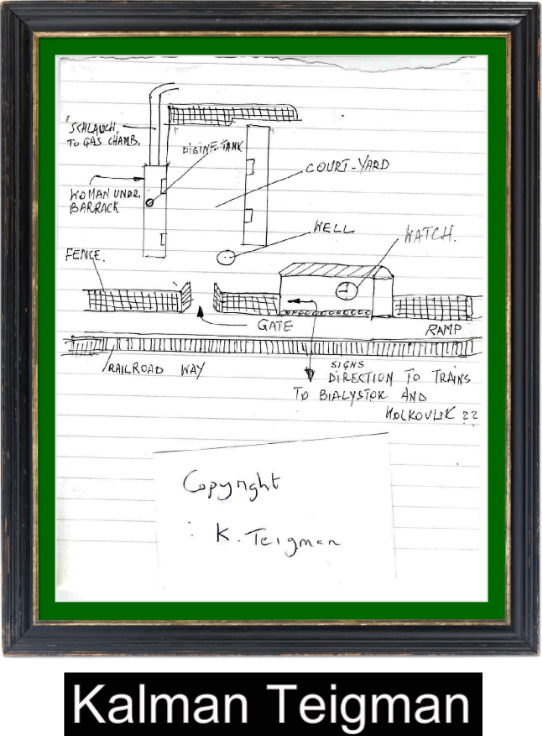 "SCHLAUCH,"
TO GAS CHAMB.
DISINF-TANK
COURT-YARD
WOMAN UNDR.
BARRACK
WELL
WATCH.
FENCE.
GATE
RAMP
RAILROAD WAY
SIGNS
DIRECTION TO TRAINS
TO BIALYSTOK AND
WOLKOVISK ??
Copyright
: K. Teigman
Kalman Teigman